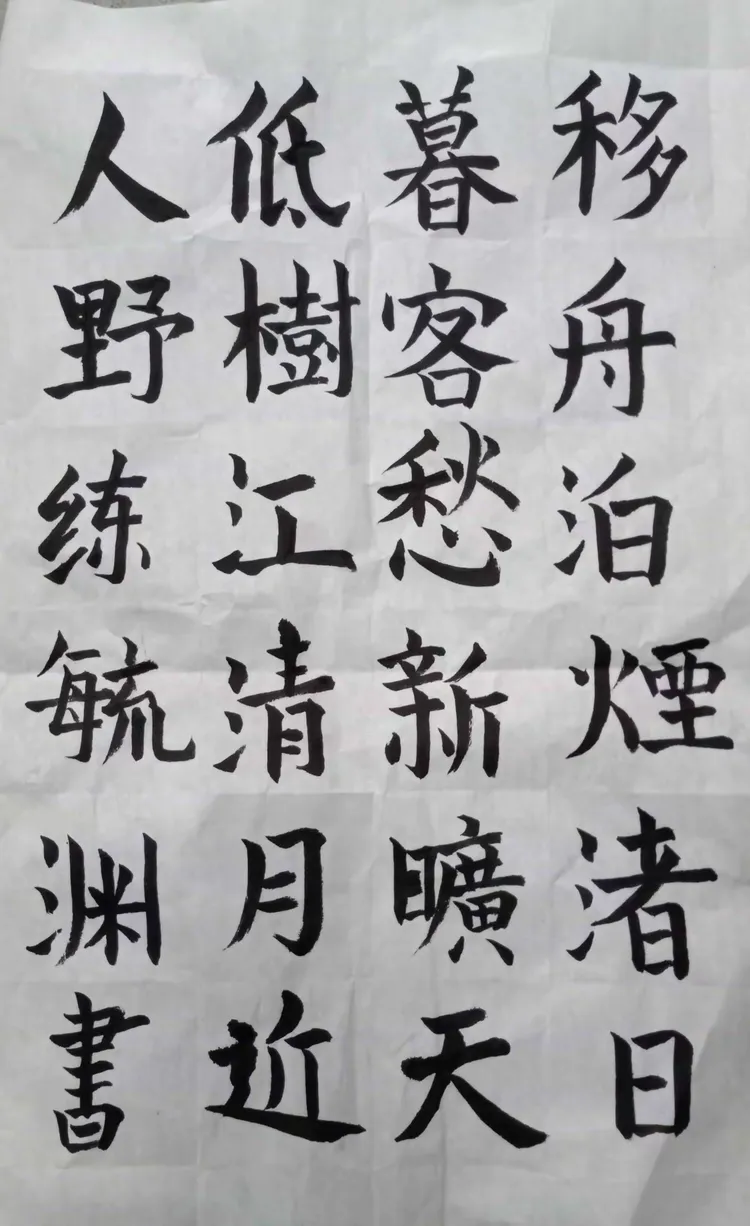 移舟泊煙渚日
暮客愁新曠天
低樹江清月近
人野练毓渊書